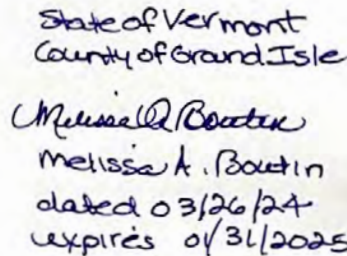 State of Vermont
County of Grand Isle
Melissa A Boutin
melissa A. Boutin
dated 03/26/24
expires 01/31/2025